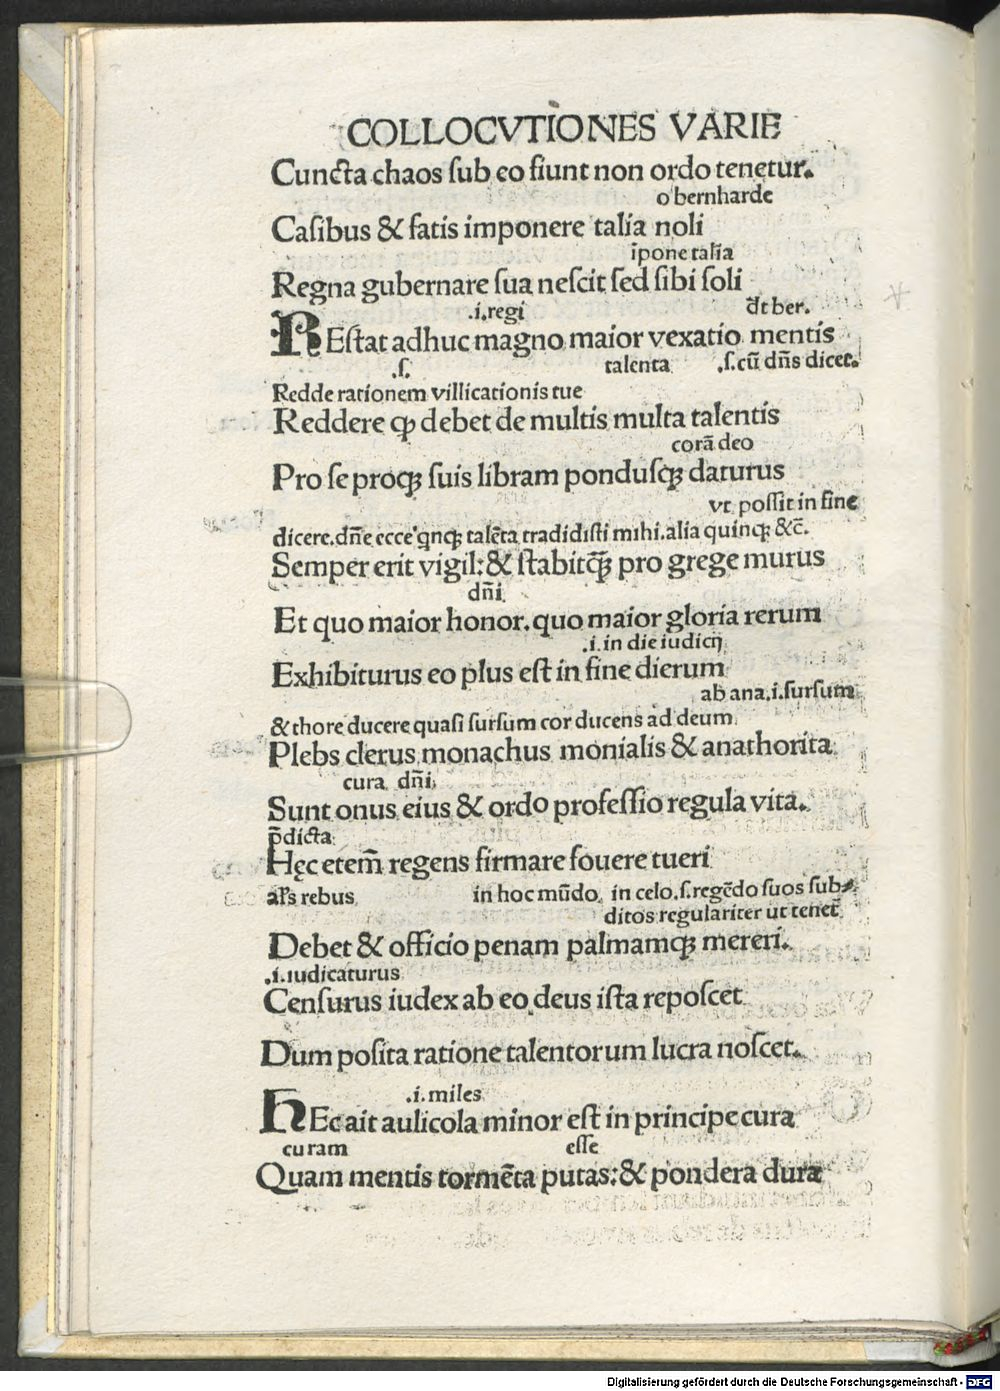 COLLOCVTIONES VARIE
Cuncta chaos ſub eo fiunt non ordo tenetur.
o bernharde
Caſibus & fatis imponere talia noli
īpone talia
Regna gubernare ſua neſcit ſed ſibi ſoli
.i.regi d̄t ber.
REſtat adhuc magno maior vexatio mentis
.ſ. talenta .ſ.cū dn̄s dicet.
Redde rationem villicationis tue
Reddere ꝙ debet de multis multa talentis
corā deo
Pro ſe proqꝫ ſuis libram ponduſqꝫ daturus
vt poſſit in fine
dicere.dn̄e ecce qnqꝫ talēta tradidiſti mihi.alia quinqꝫ &c̄.
Semper erit vigil:& ſtabitqꝫ pro grege murus
dn̄i
Et quo maior honor.quo maior gloria rerum
.i.in die iudicij
Exhibiturus eo plus eſt in fine dierum
ab ana.i.ſurſum
& thore ducere quaſi ſurſum cor ducens ad deum
Plebs clerus monachus monialis & anathorita
cura dn̄i
Sunt onus eius & ordo profeſſio regula vita.
p̄dicta
Hęc etem̄ regens firmare fouere tueri
al's rebus in hoc mūdo in celo.ſ.regēdo ſuos ſub
ditos regulariter ut tenet̄
Debet & officio penam palmamqꝫ mereri.
.i.iudicaturus
Cenſurus iudex ab eo deus iſta repoſcet
Dum poſita ratione talentorum lucra noſcet.
.i.miles
HEc ait aulicola minor eſt in principe cura
curam eſſe
Quam mentis tormēta putas:& pondera dura
Digitalisierung gefördert durch die Deutsche Forschungsgemeinschaft - DFG